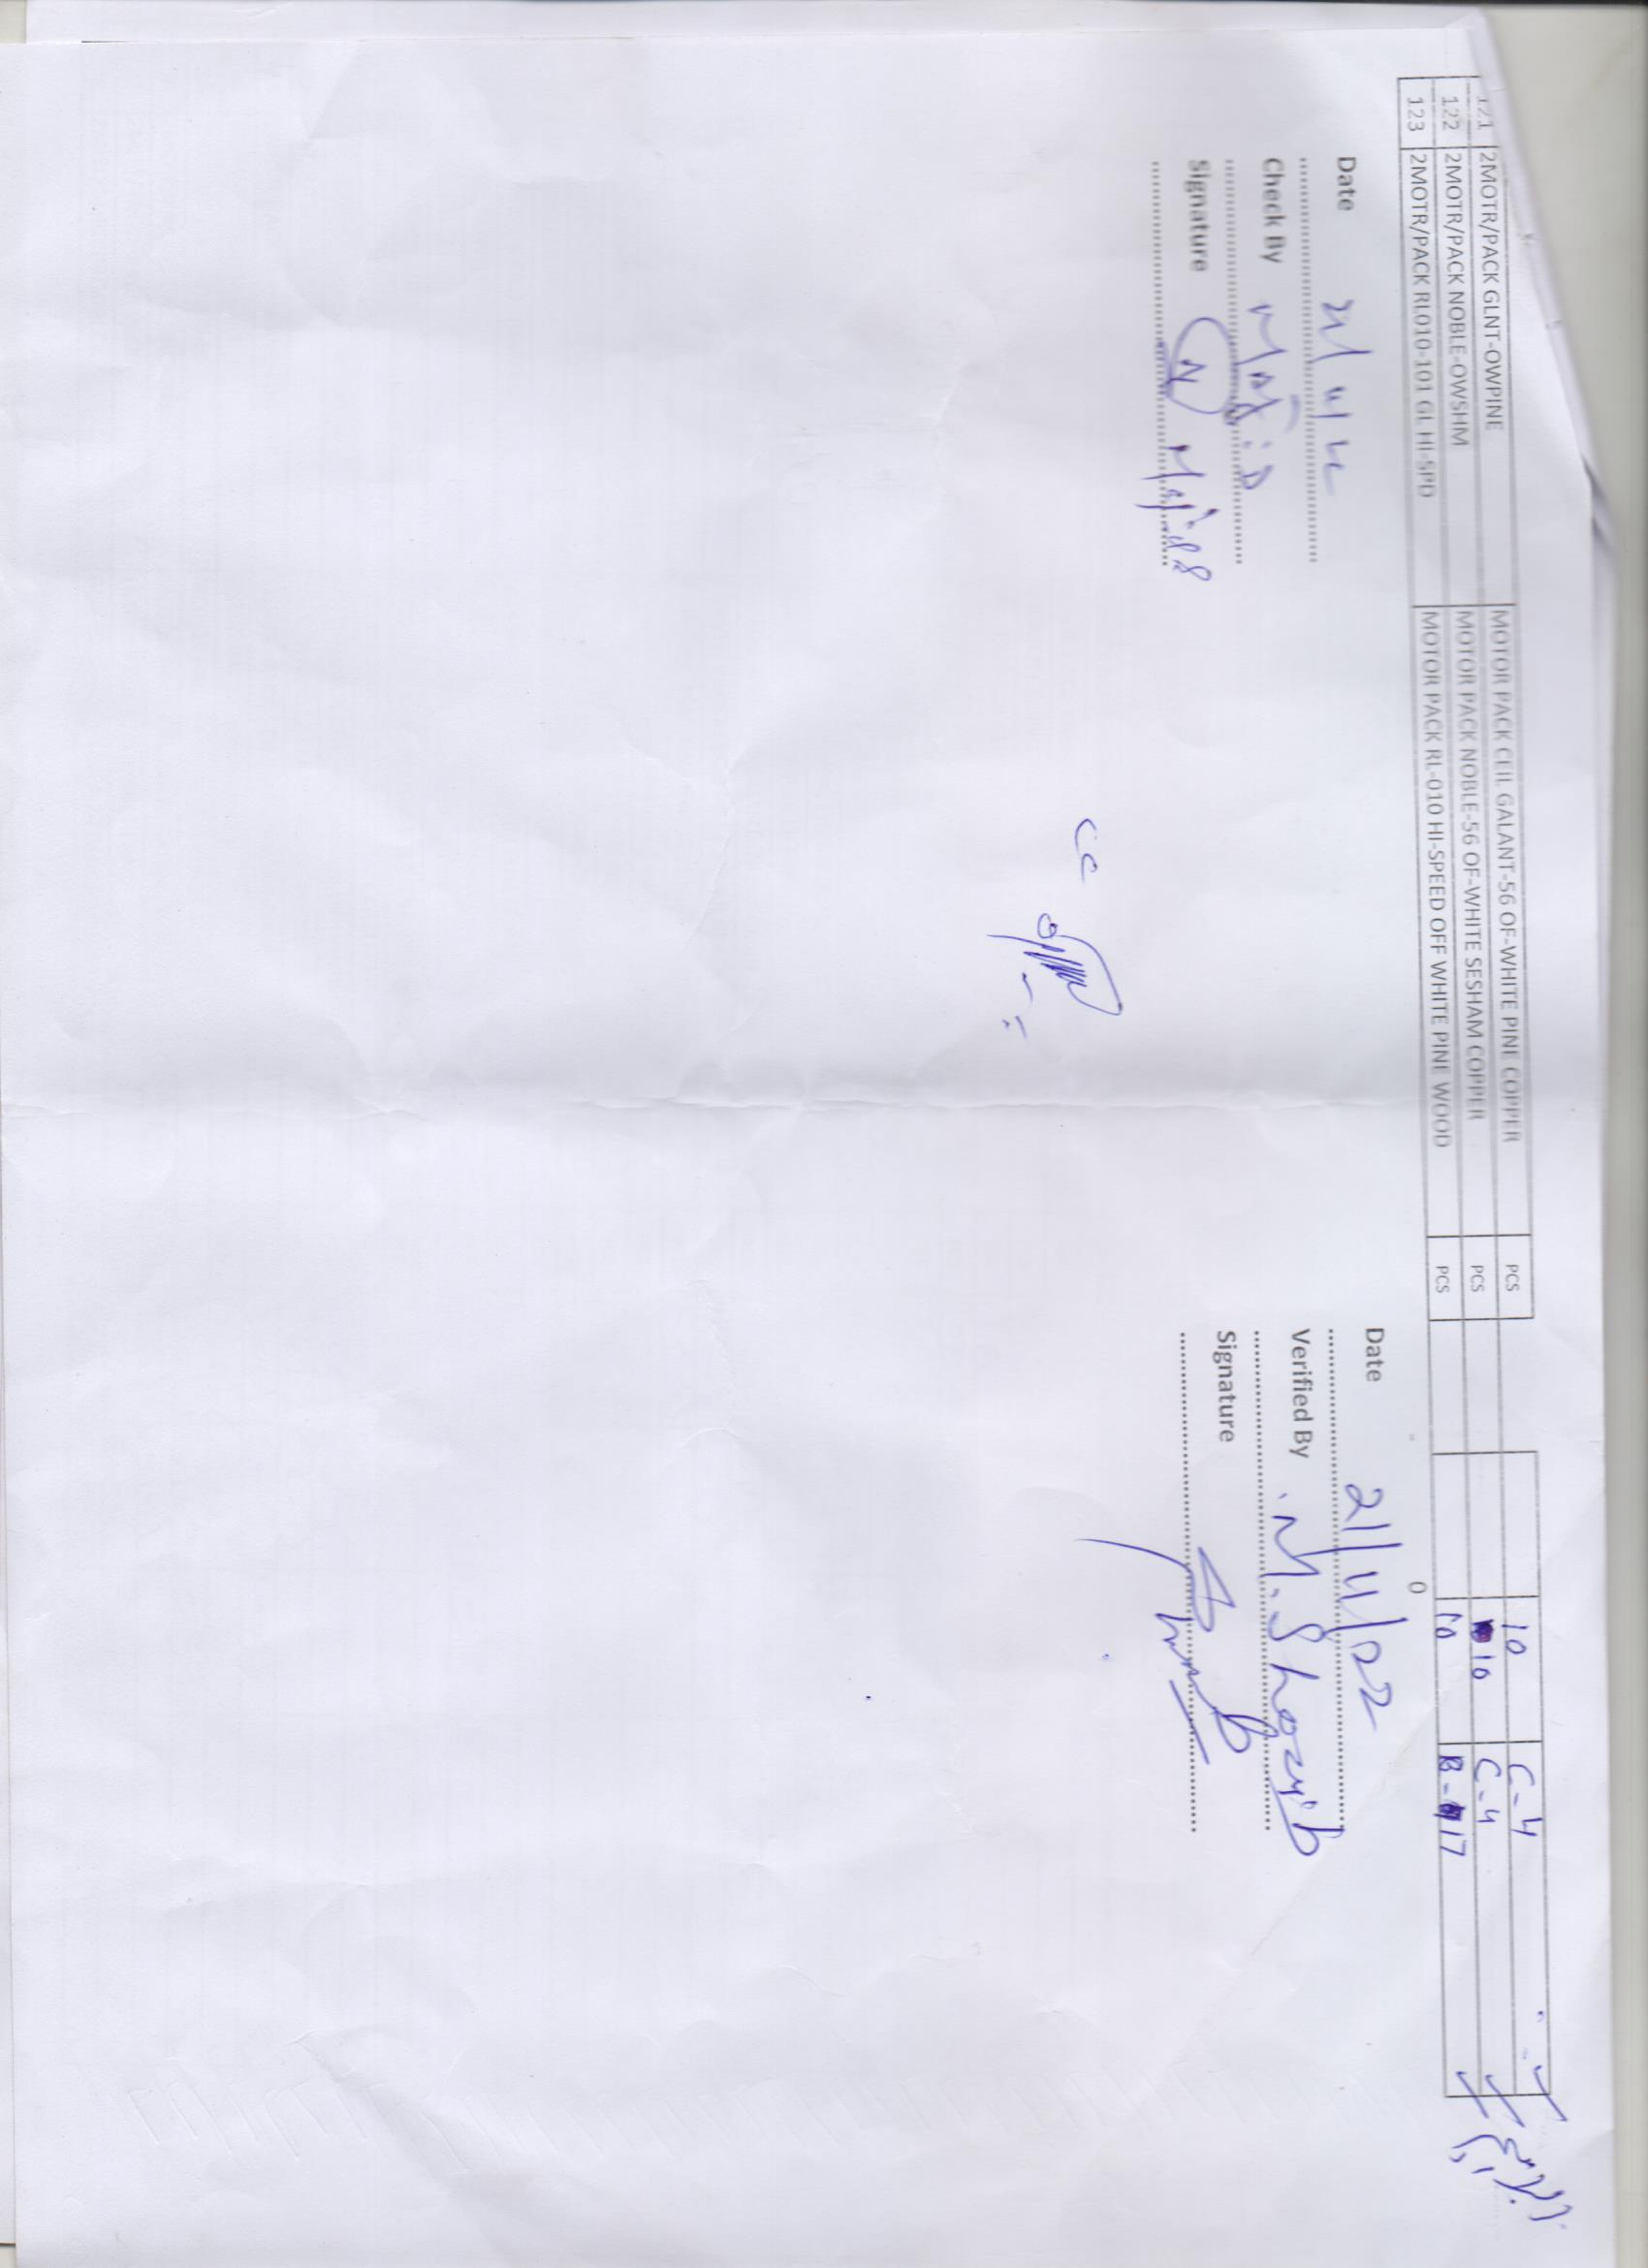 121 2MOTR/PACK GLNT-OWPINE MOTOR PACK CEIL GALANT-56 OF-WHITE PINE COPPER PCS 10 C-4
122 2MOTR/PACK NOBLE-OWSHM MOTOR PACK NOBLE-56 OF-WHITE SESHAM COPPER PCS 10 C-4
123 2MOTR/PACK RL010-101 GL HI-SPD MOTOR PACK RL-010 HI-SPEED OFF WHITE PINE WOOD PCS 10 B-17
0
Date 21/11/22
Check By MAJID
Signature Majid
Date 21/11/22
Verified By M. Shozyib
Signature
CC